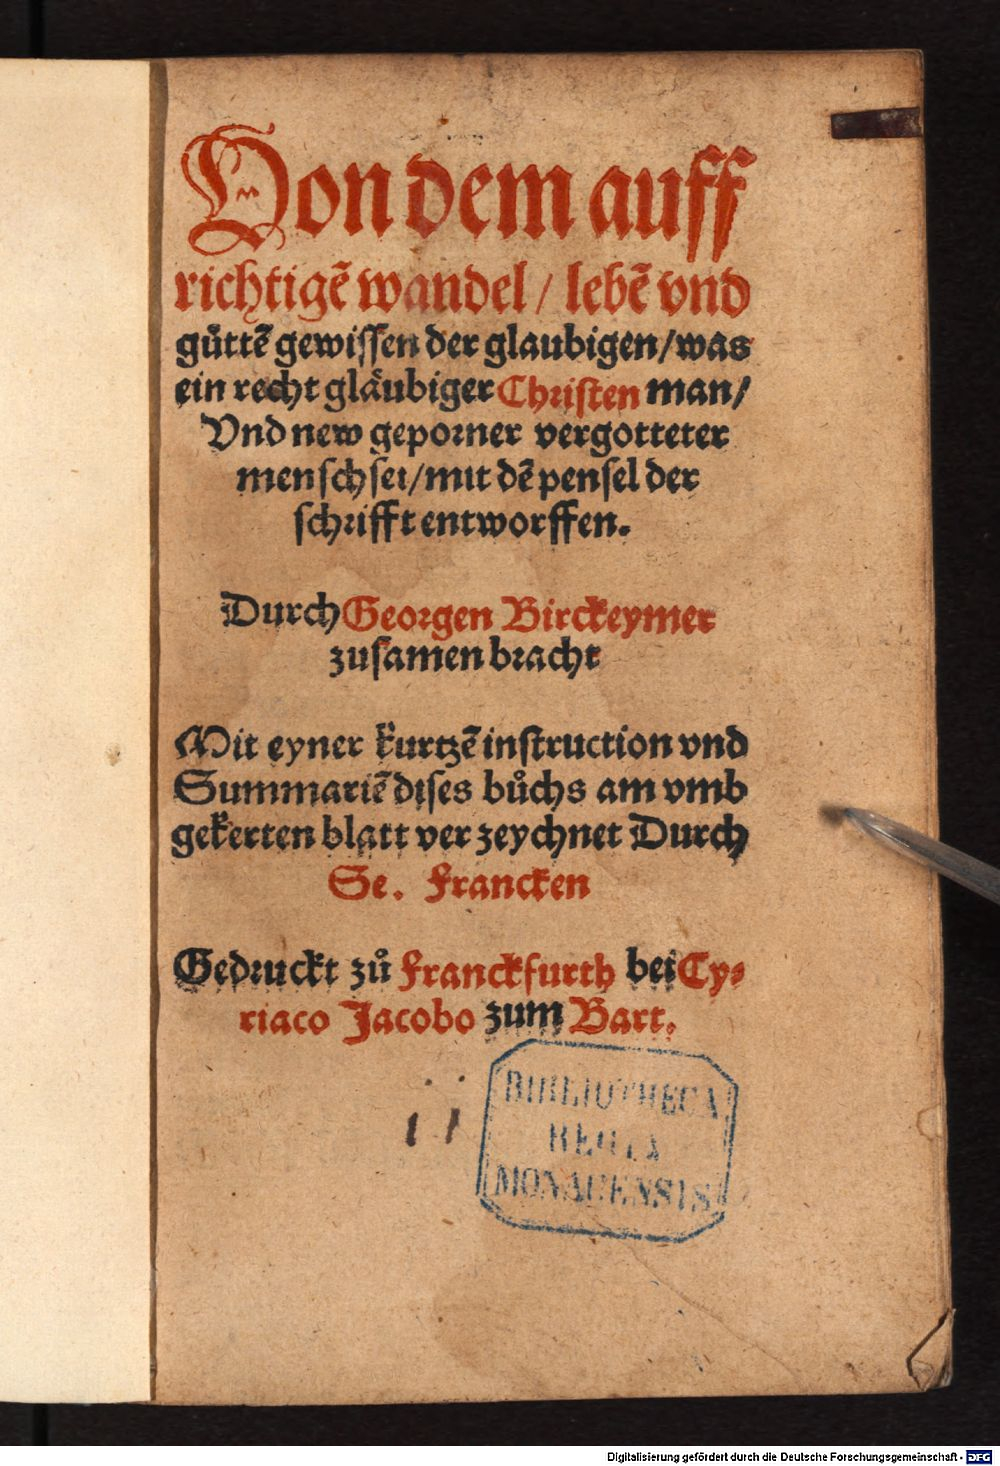 Von dem auff
richtigẽ wandel / lebẽ vnd
gůttẽ gewissen der glaubigen / was
ein recht gläubiger Christen man /
Vnd new geporner vergotteter
mensch sei / mit dẽ pensel der
schrifft entworffen.
Durch Georgen Birckeymer
zusamen bracht
Mit eyner kurtzẽ instruction vnd
Summariẽ dises bůchs am vmb
gekerten blatt ver zeychnet Durch
Se. Francken
Gedruckt zů Franckfurth bei Cy⸗
riaco Jacobo zum Bart.
BIBLIOTHECA
REGIA
MONACENSIS
Digitalisierung gefördert durch die Deutsche Forschungsgemeinschaft - DFG